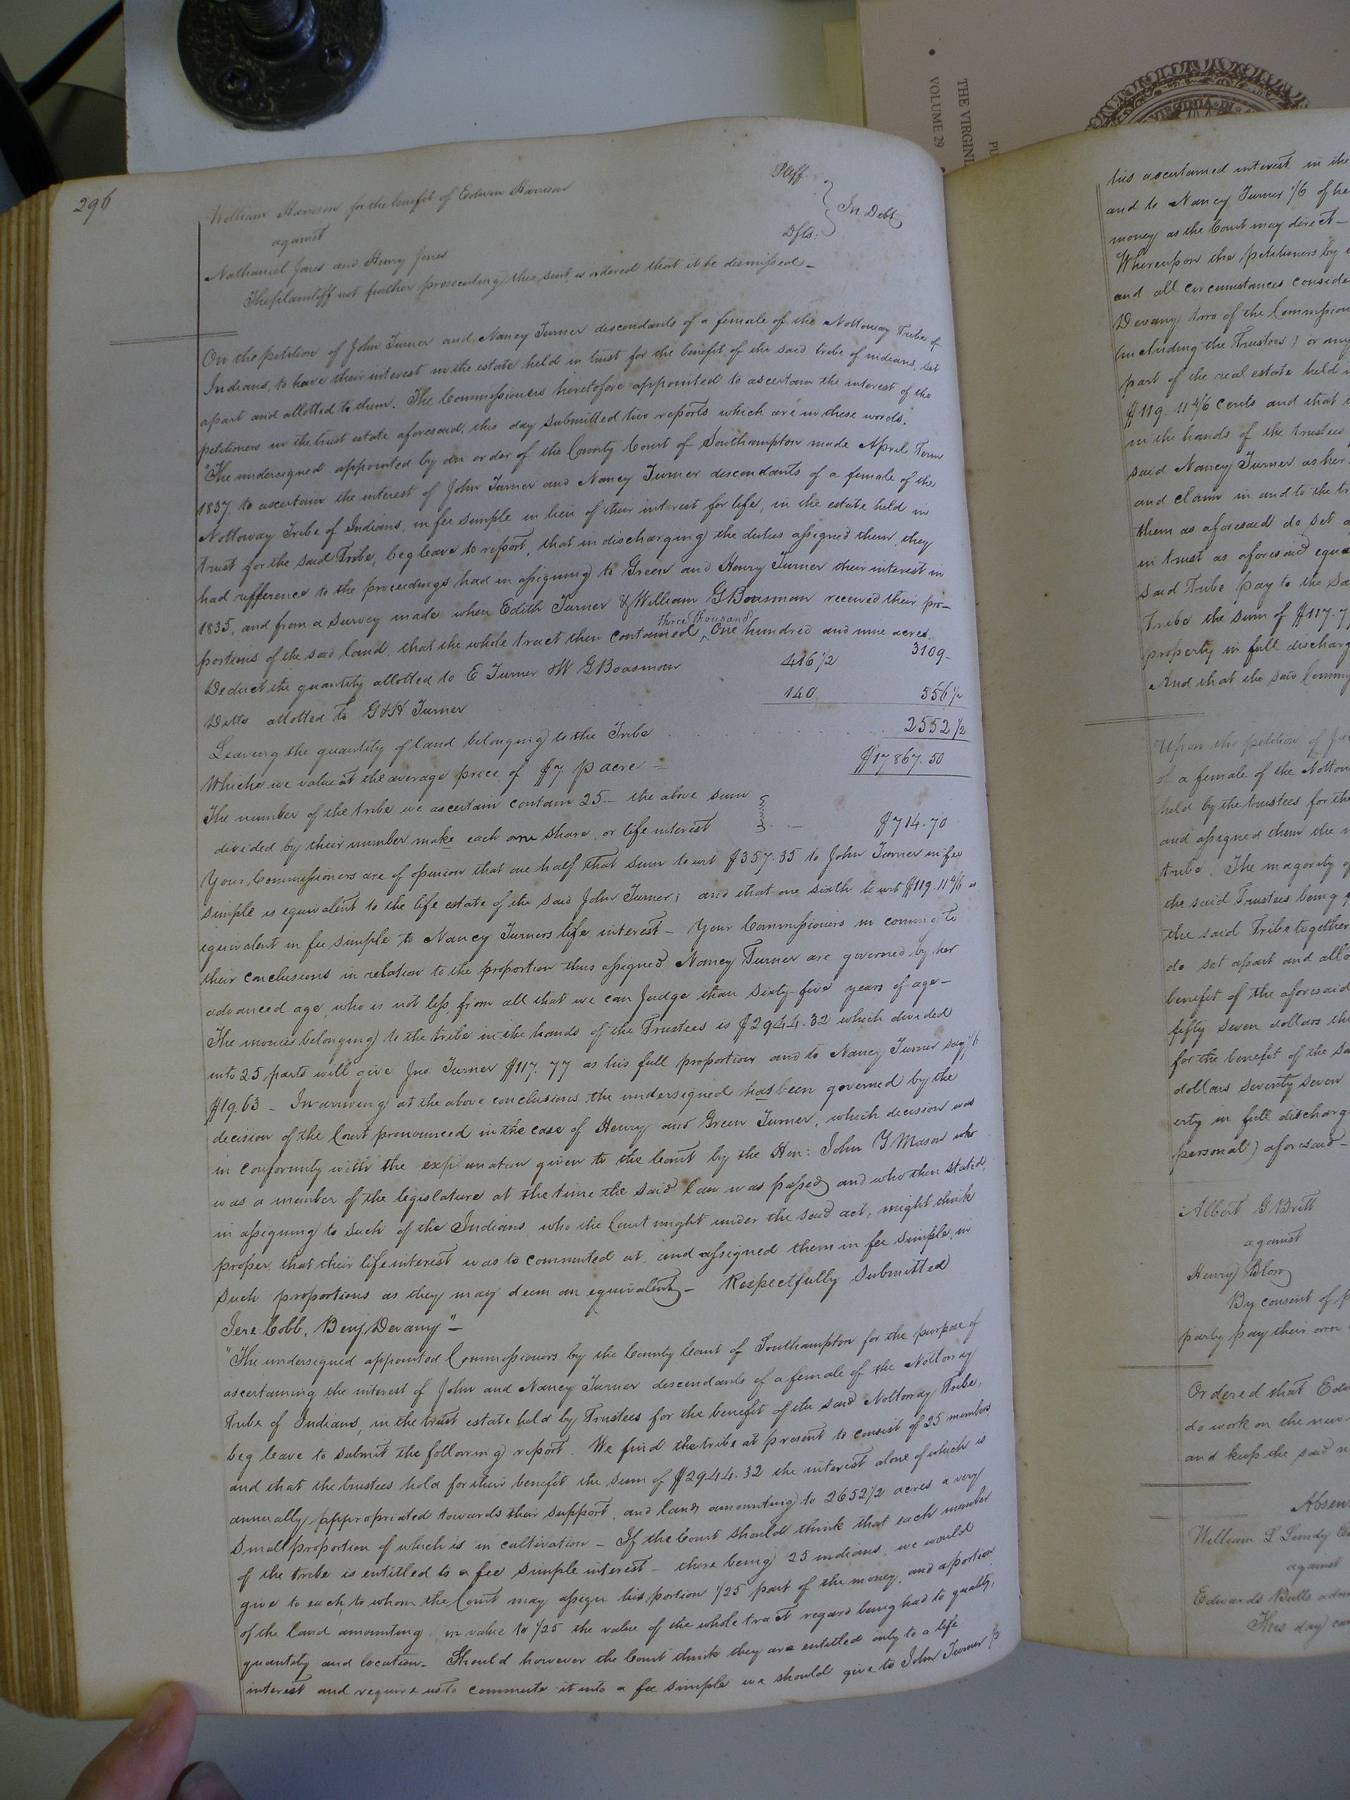 THE VIRGINIA
VOLUME 29
VIRGINIA
296
William Harrison for the benefit of Edwin Harrison Pltff.
against In Debt
Nathaniel Jones and Henry Jones Dfts.
The plaintiff not further prosecuting this suit is ordered that it be dismissed—
On the petition of John Turner and Nancy Turner descendants of a female of the Nottoway Tribe of
Indians, to have their interest in the estate held in trust for the benefit of the said tribe of indians, set
apart and allotted to them. The Commissioners heretofore appointed to ascertain the interest of the
petitioners in the trust estate aforesaid, this day submitted two reports which are in these words.
"The undersigned appointed by an order of the County Court of Southampton made April Term
1837 to ascertain the interest of John Turner and Nancy Turner descendants of a female of the
Nottoway Tribe of Indians, in fee simple in lieu of their interest for life, in the estate held in
trust for the said Tribe, beg leave to report, that in discharging the duties assigned them, they
had refference to the proceedings had in assigning to Green and Henry Turner their interest in
1835, and from a survey made when Edith Turner & William G Boasman received their pro-
portions of the said land, that the whole tract then contained three thousand One hundred and nine acres 3109-
Deduct the quantity allotted to E Turner & W G Boasman 416 1/2
Ditto allotted to G & H Turner 140 556 1/2
Leaving the quantity of land belonging to the Tribe 2552 1/2
Whiche we value at the average price of $7 p acre = $17867.50
The number of the tribe we ascertain contain 25 - the above sum
devided by their number make each one share, or life interest — $714.70
Your Commissioners are of opinion that one half that sum to wit $357.35 to John Turner in fee
simple is equivalent to the life estate of the said John Turner; and that one sixth to wit $119.11 4/6 is
equivalent in fee simple to Nancy Turners life interest - Your Commissioners in coming to
their conclusions in relation to the proportion thus assigned Nancy Turner are governed by her
advanced age, who is not less from all that we can Judge than Sixty-five years of age-
The monies belonging to the tribe in the hands of the Trustees is $2944.32 which divided
into 25 parts will give Jno. Turner $117.77 as his full proportion and to Nancy Turner say 1/6
$19.63 - In arriving at the above conclusions the undersigned has been governed by the
decision of the Court pronounced in the case of Henry and Green Turner, which decision was
in conformity with the explination given to the Court by the Hon: John Y Mason who
was a member of the legislature at the time the said law was passed and who then stated,
in assigning to such of the Indians who the Court might under the said act, might think
proper, that their life interest was to commuted at, and assigned them in fee simple, in
such proportions as they may deem an equivalent - Respectfully submitted
Jere Cobb, Benj Devany"-
"The undersigned appointed Commissioners by the County Court of Southampton for the purpose of
ascertaining the interest of John and Nancy Turner descendants of a female of the Nottoway
Tribe of Indians, in the trust estate held by Trustees for the benefit of the said Nottoway Tribe,
beg leave to submit the following report. We find the tribe at present to consist of 25 members
and that the trustees hold for their benefit the sum of $2944.32 the interest alone of which is
annually appropriated towards their support, and lands amounting to 2652 1/2 acres a very
small proportion of which is in cultivation - If the Court should think that each member
of the tribe is entitled to a fee simple interest - there being 25 indians we would
give to each, to whom the Court may assign his portion 1/25 part of the money, and a portion
of the land amounting in value to 1/25 the value of the whole tract regard being had to quality,
quantity and location. Should however the Court think they are entitled only to a life
interest and require us to commute it into a fee simple we should give to John Turner 1/2
his ascertained interest in the
and to Nancy Turner 1/6 of he
money as the Court may direct -
Whereupon the petitioners by
and all circumstances conside
Devany two of the Commission
(including the Trustees) or any
part of the real estate held
$119.11 4/6 Cents and that
in the hands of the trustees
said Nancy Turner as her
and claim in and to the tr
them as aforesaid do set a
in trust as aforesaid equa
said Tribe pay to the sa
tribe the sum of $117.7
property in full discharg
And that the said Comm
Upon the petition of
of a female of the Nottow
held by the trustees for the
and assigned them the
tribe. The majority of
the said Trustees being
the said Tribe together
do set apart and allo
benefit of the aforesaid
fifty seven dollars th
for the benefit of the sa
dollars seventy seven
erty in full discharg
personal) aforesaid -
Albert G Britt
against
Henry Blow
By consent of p
party pay their own
Ordered that Edw
do work on the new
and keep the said
Absen
William L Lundy
against
Edwards Butts adm
This day ca